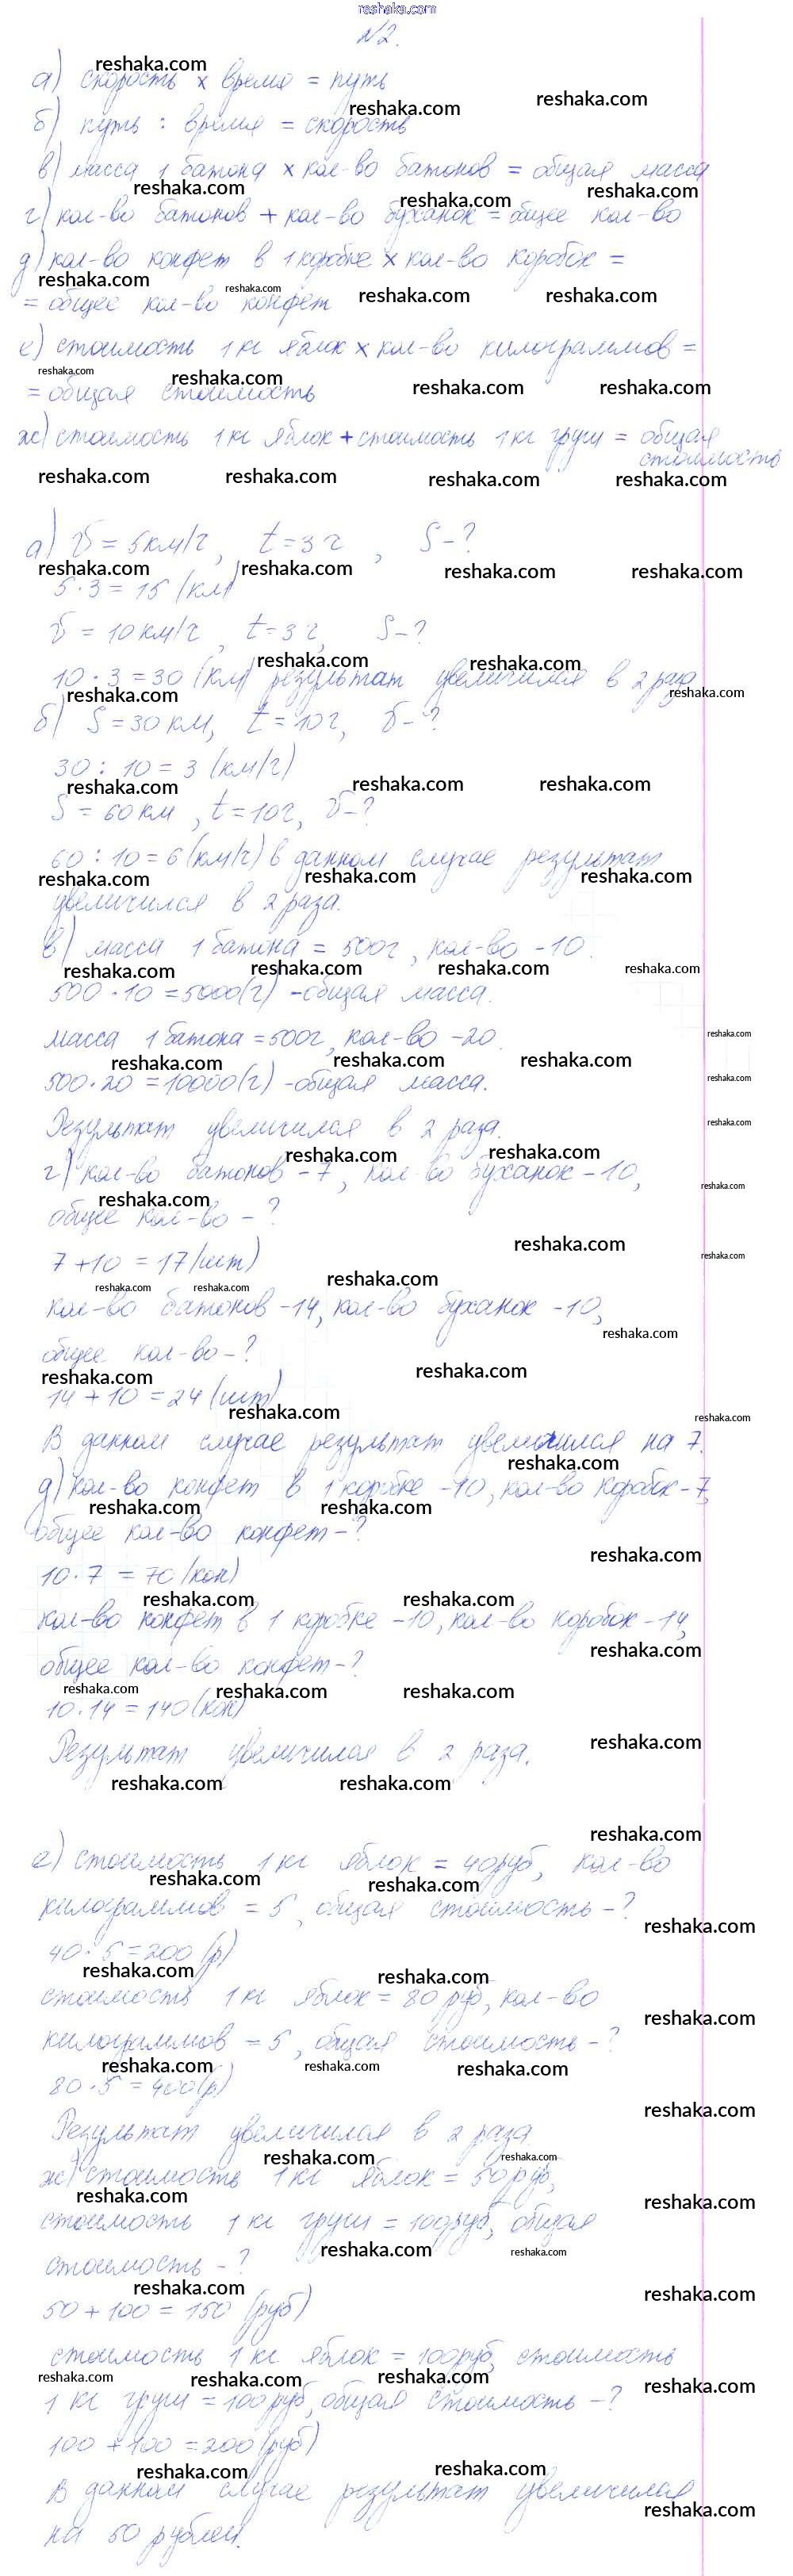 reshaka.com
№2.
а) скорость × время = путь
б) путь : время = скорость
в) масса 1 батона × кол-во батонов = общая масса
г) кол-во батонов + кол-во буханок = общее кол-во
д) кол-во конфет в 1 коробке × кол-во коробок =
= общее кол-во конфет
е) стоимость 1 кг яблок × кол-во килограммов =
= общая стоимость
ж) стоимость 1 кг яблок + стоимость 1 кг груш = общая
стоимость
а) V = 5 км/ч, t = 3 ч, S - ?
5 · 3 = 15 (км)
V = 10 км/ч, t = 3 ч, S - ?
10 · 3 = 30 (км) результат увеличился в 2 раза
б) S = 30 км, t = 10 ч, V - ?
30 : 10 = 3 (км/ч)
S = 60 км, t = 10 ч, V - ?
60 : 10 = 6 (км/ч) в данном случае результат
увеличился в 2 раза.
в) масса 1 батона = 500 г, кол-во - 10.
500 · 10 = 5000 (г) - общая масса.
масса 1 батона = 500 г, кол-во - 20.
500 · 20 = 10000 (г) - общая масса.
Результат увеличился в 2 раза.
г) кол-во батонов - 7, кол-во буханок - 10,
общее кол-во - ?
7 + 10 = 17 (шт)
кол-во батонов - 14, кол-во буханок - 10,
общее кол-во - ?
14 + 10 = 24 (шт)
В данном случае результат увеличился на 7.
д) кол-во конфет в 1 коробке - 10, кол-во коробок - 7,
общее кол-во конфет - ?
10 · 7 = 70 (кон)
кол-во конфет в 1 коробке - 10, кол-во коробок - 14,
общее кол-во конфет - ?
10 · 14 = 140 (кон)
Результат увеличился в 2 раза.
е) стоимость 1 кг яблок = 40 руб, кол-во
килограммов = 5, общая стоимость - ?
40 · 5 = 200 (р)
стоимость 1 кг яблок = 80 руб, кол-во
килограммов = 5, общая стоимость - ?
80 · 5 = 400 (р)
Результат увеличился в 2 раза
ж) стоимость 1 кг яблок = 50 руб,
стоимость 1 кг груш = 100 руб, общая
стоимость - ?
50 + 100 = 150 (руб)
стоимость 1 кг яблок = 100 руб, стоимость
1 кг груш = 100 руб, общая стоимость - ?
100 + 100 = 200 (руб)
В данном случае результат увеличился
на 50 рублей.